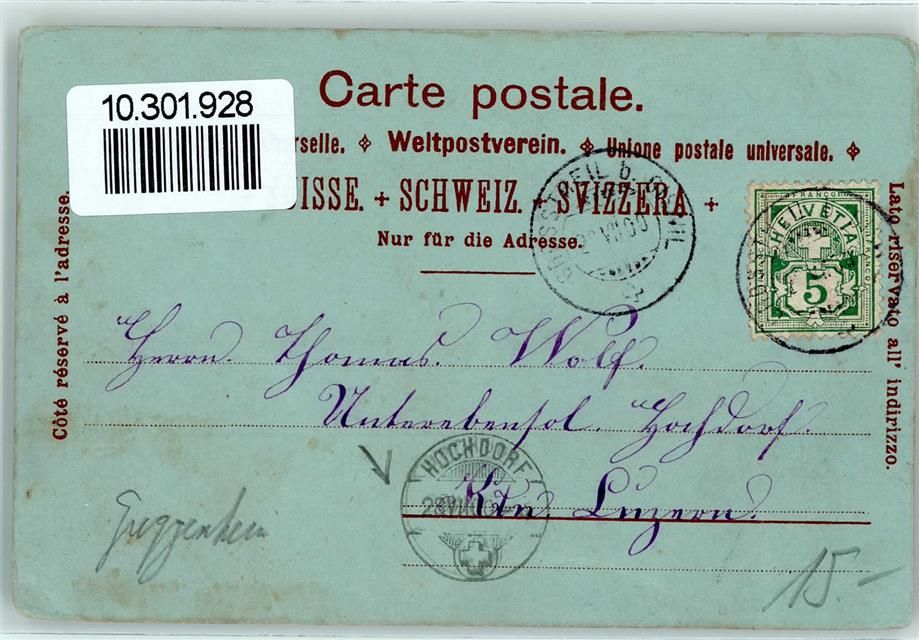 10.301.928
Carte postale.
rselle. Weltpostverein. Unione postale universale.
UISSE. + SCHWEIZ. + SVIZZERA +
Nur für die Adresse.
Côté réservé à l'adresse.
Lato riservato all' indirizzo.
FRANCO
HELVETIA
5
Herrn. Thomas. Wolf.
Unterebensol. Hochdorf.
HOCHDORF
Ktn. Luzern.
Guggenheim
15.-